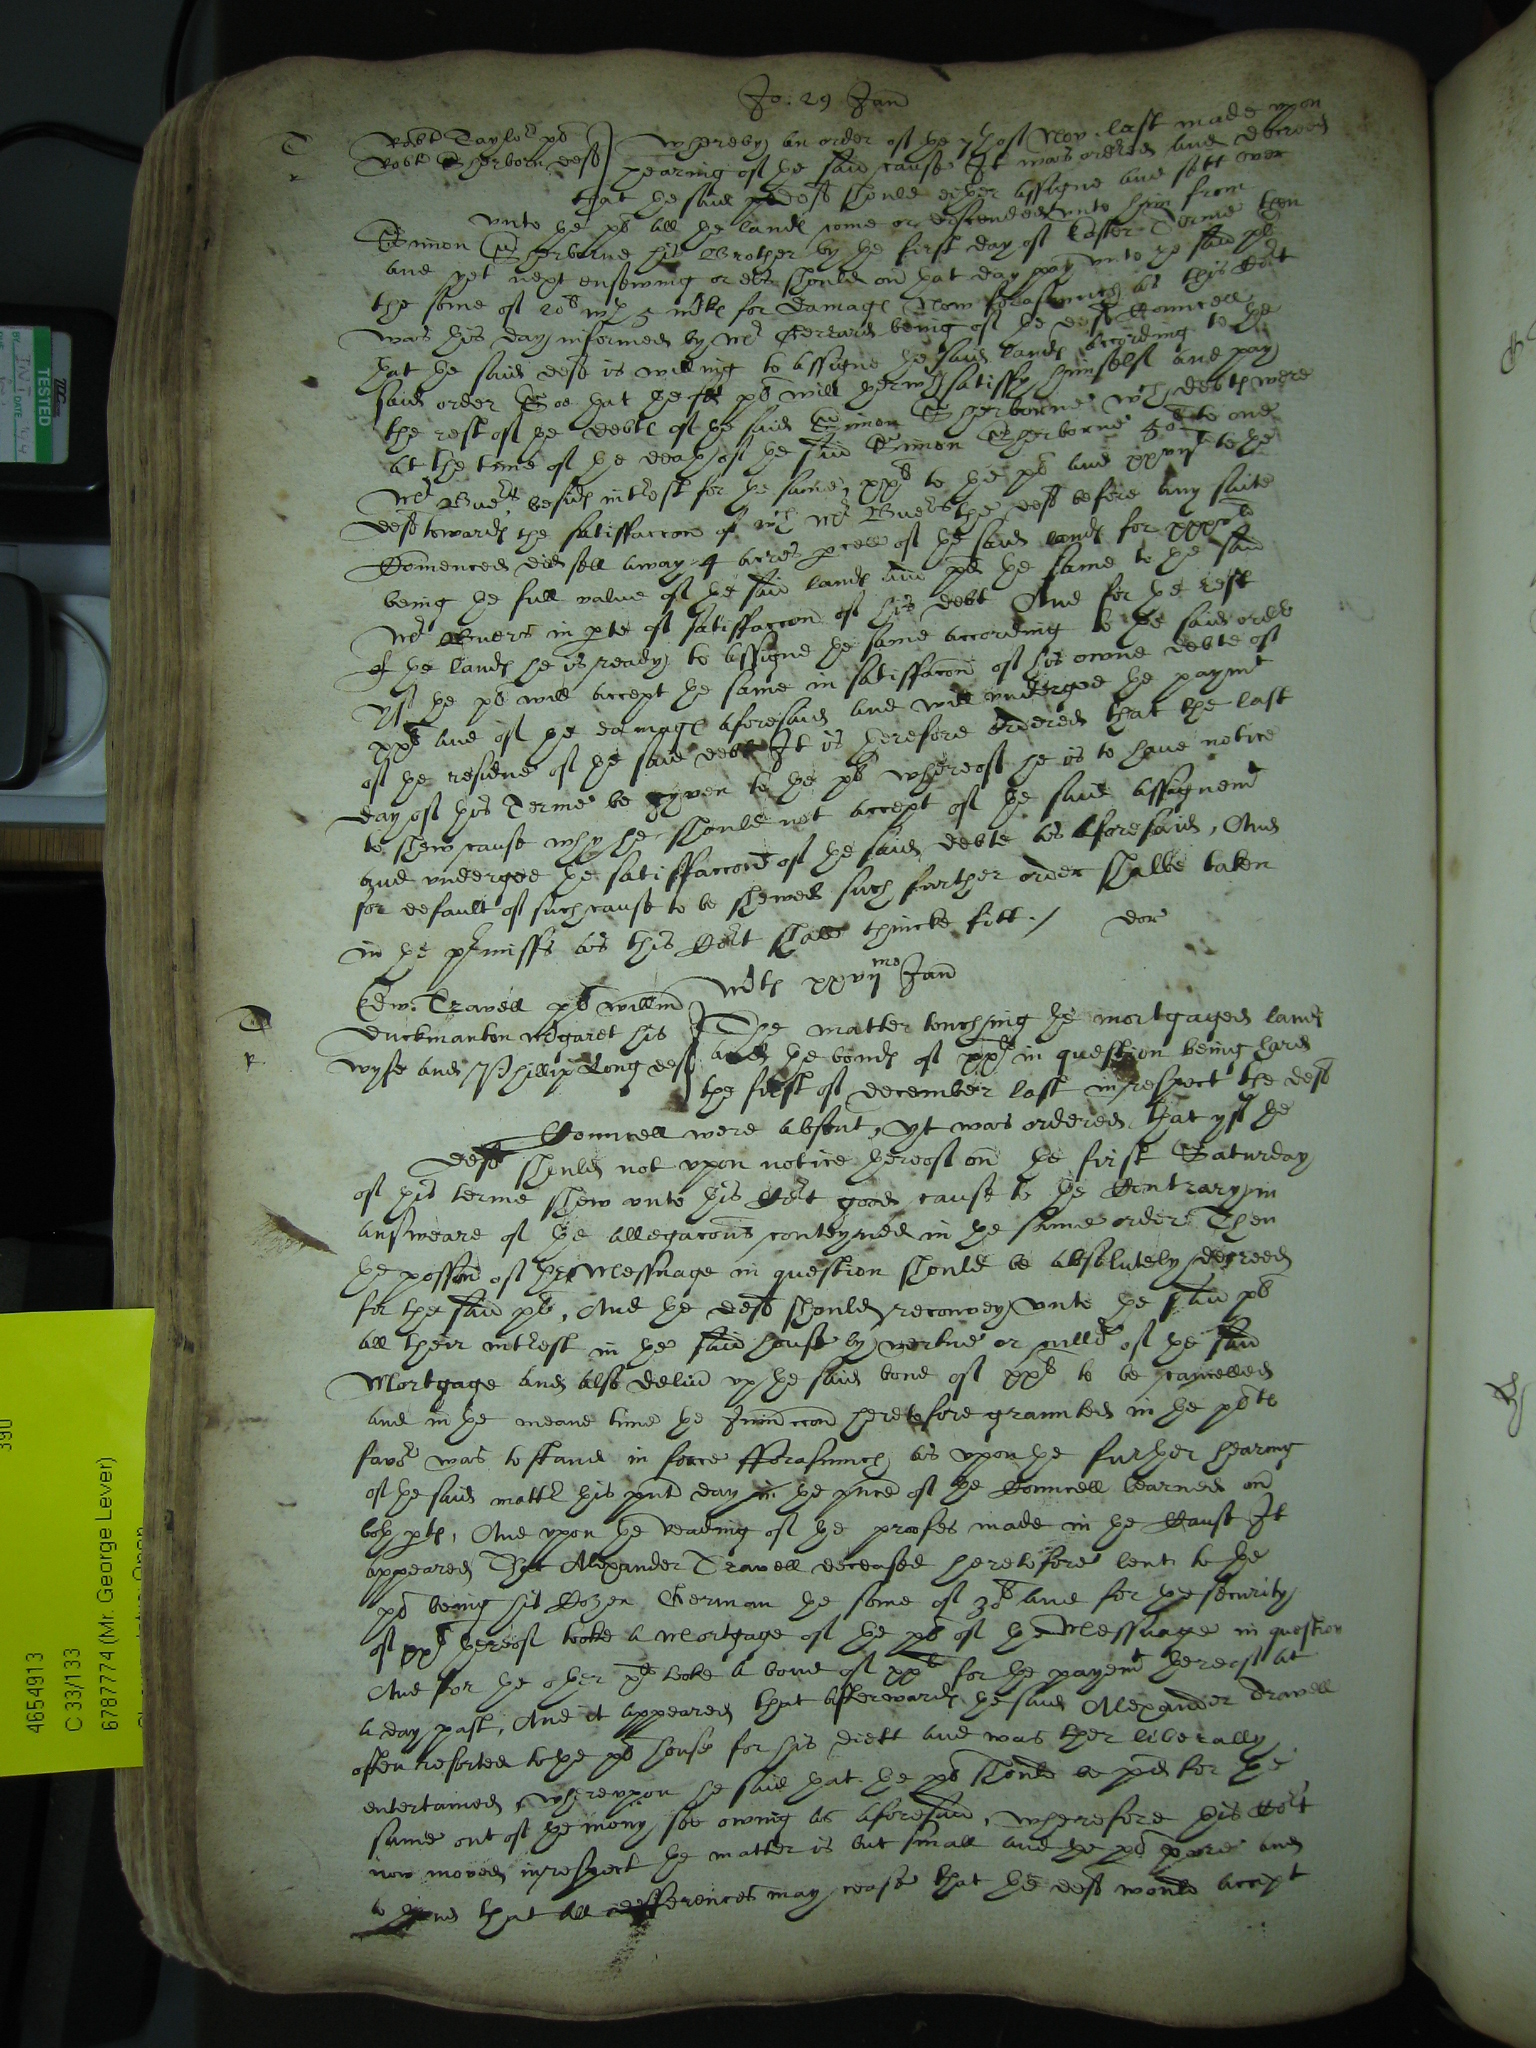 Jo: 29 Jan
T
r
Robt Taylor pl
Robt Sherborn deft
Whereby an order of the 7th of Nov last made upon
hearing of the said cause It was ordered and decreed
that the said deft should either assigne and sett over
unto the pl all the lands come or discended unto him from
Simon Sherborne his Brother by the first day of Easter Terme then
and yet next ensewing or els should on that day pay unto the said pl
the some of 20l wth 5 mks for damages Now forasmuch as this Court
was this day informed by Mr Gerrard being of the defts Councell
that the said deft is willing to assigne the said lands according to the
said order Soe that the pl will therwth satisfy himself and pay
the rest of the debts of the said Simon Sherborne wch debts were
at the time of the death of the said Simon Sherborne 50l to one
Mr besides intrest for the same, xxl to the pl and to the
deft towards the satisfaccon of wch Mr the deft before any suite
Comenced did sell away 4 acres pcell of the said lands for
being the full value of the said lands and pd the same to the said
Mr in pte of satisfaccon of his debt And for the rest
of the lands he is ready to assigne the same according to the said order
yf the pl will accept the same in satisfaccon of his owne debte of
xxl and of the damages aforesaid and will undergoe the paymt
of the residue of the said debts It is therefore ordered that the last
day of this Terme be gyven to the pl whereof he is to have notice
to shew cause why he should not accept of the said assignemt
and undergoe the satisfaccon of the said debte as aforesaid, And
for default of such cause to be shewed such further order shalbe taken
in the pmisses as this Court shall thincke fitt /
Mtis xxvijmo Jan
T
r
Edw: Travell pl Willm
Duckmanton Mgaret his
wyfe and Phillip Long deft
The matter touching the mortgaged lands
and the bonds of xxl in question being hard
the first of december last in respect the defts
Councell were absent, yt was ordered that yf the
deft should not upon notice thereof on the first Saturday
of this terme shew unto this Court good cause to the Contrary in
answeare of the allegacons conteyned in the same order Then
the possion of the Messuage in question should be absolutely decreed
for the said pl, And the deft should reconvey unto the said pl
all their intrest in the said house by vertue or cullor of the said
Mortgage and also deliver up the said bond of xxl to be cancelled
and in the meane time the Iniunccon heretofore graunted in the plts
favor was to stand in force fforasmuch as upon the further hearing
of the said matter this pnte day in the pnce of the Councell learned on
both pts, And upon the reading of the proofes made in the Cause It
appeared That Alexander Travell deceased heretofore lent to the
pl being his Cozen German the some of 30l and for the security
of xxl thereof tooke a Mortgage of the pl of the Messuage in question
And for the other pte tooke a bond of xxl for the payemt thereof at
a day past, And it appeared that afterwards the said Alexander Travell
often resorted to the pl house for his diett and was ther liberally
entertained, whereupon he said that the pl should be pd for the
same out of the mony soe owing as aforesaid, wherefore this Court
now moved in respect the matter is but small and the pl poore and
that all differences may cease that the deft would accept
4654913
C 33/133
6787774 (Mr. George Lever)
390
TESTED